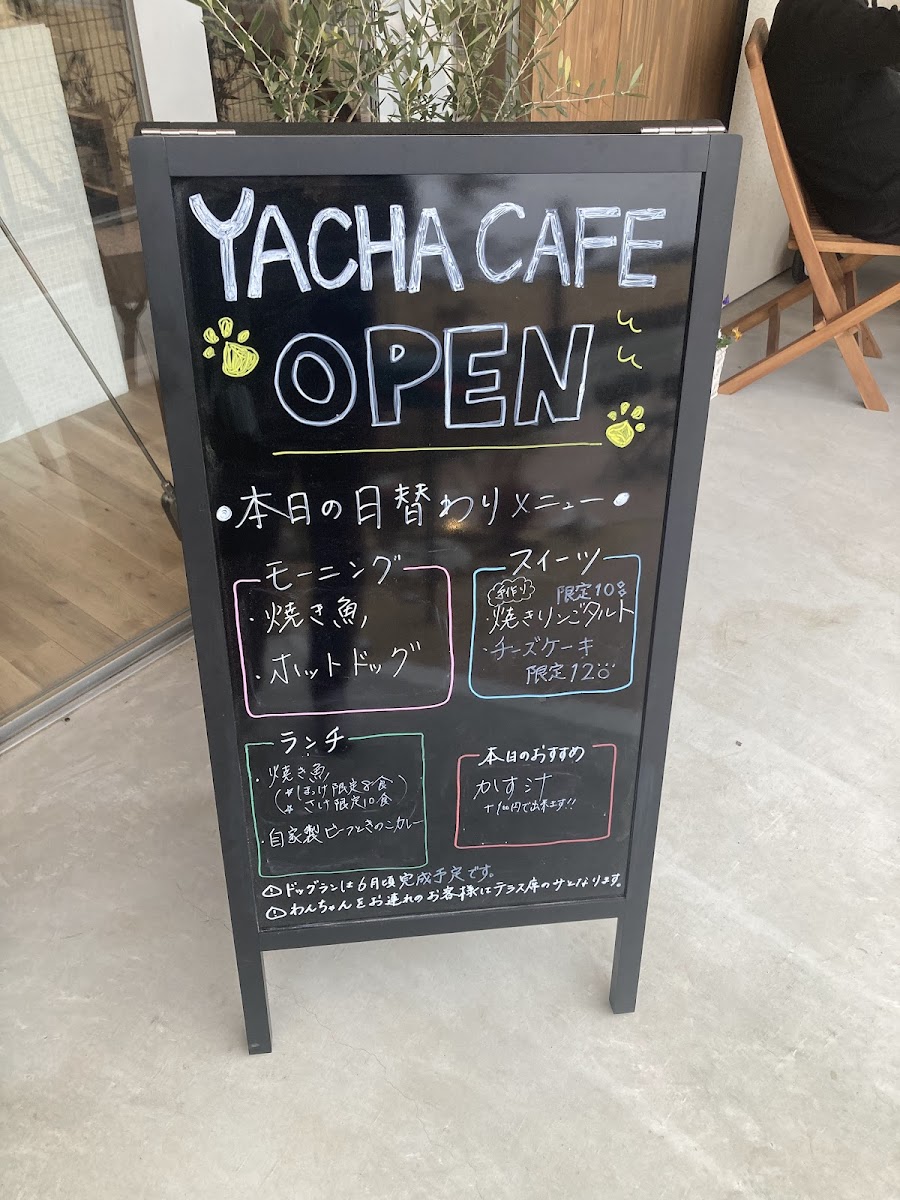 YACHA CAFE
OPEN
・本日の日替わりメニュー・
モーニング
・焼き魚
・ホットドッグ
スイーツ
手作り 限定10コ
・焼きリンゴタルト
・チーズケーキ
限定12コ
ランチ
・焼き魚
(☆ほっけ限定8食
☆さけ限定10食)
・自家製ビーフときのこカレー
本日のおすすめ
かす汁
+100円で出来ます!!
① ドッグランは6月頃完成予定です。
① わんちゃんをお連れのお客様はテラス席のみとなります。